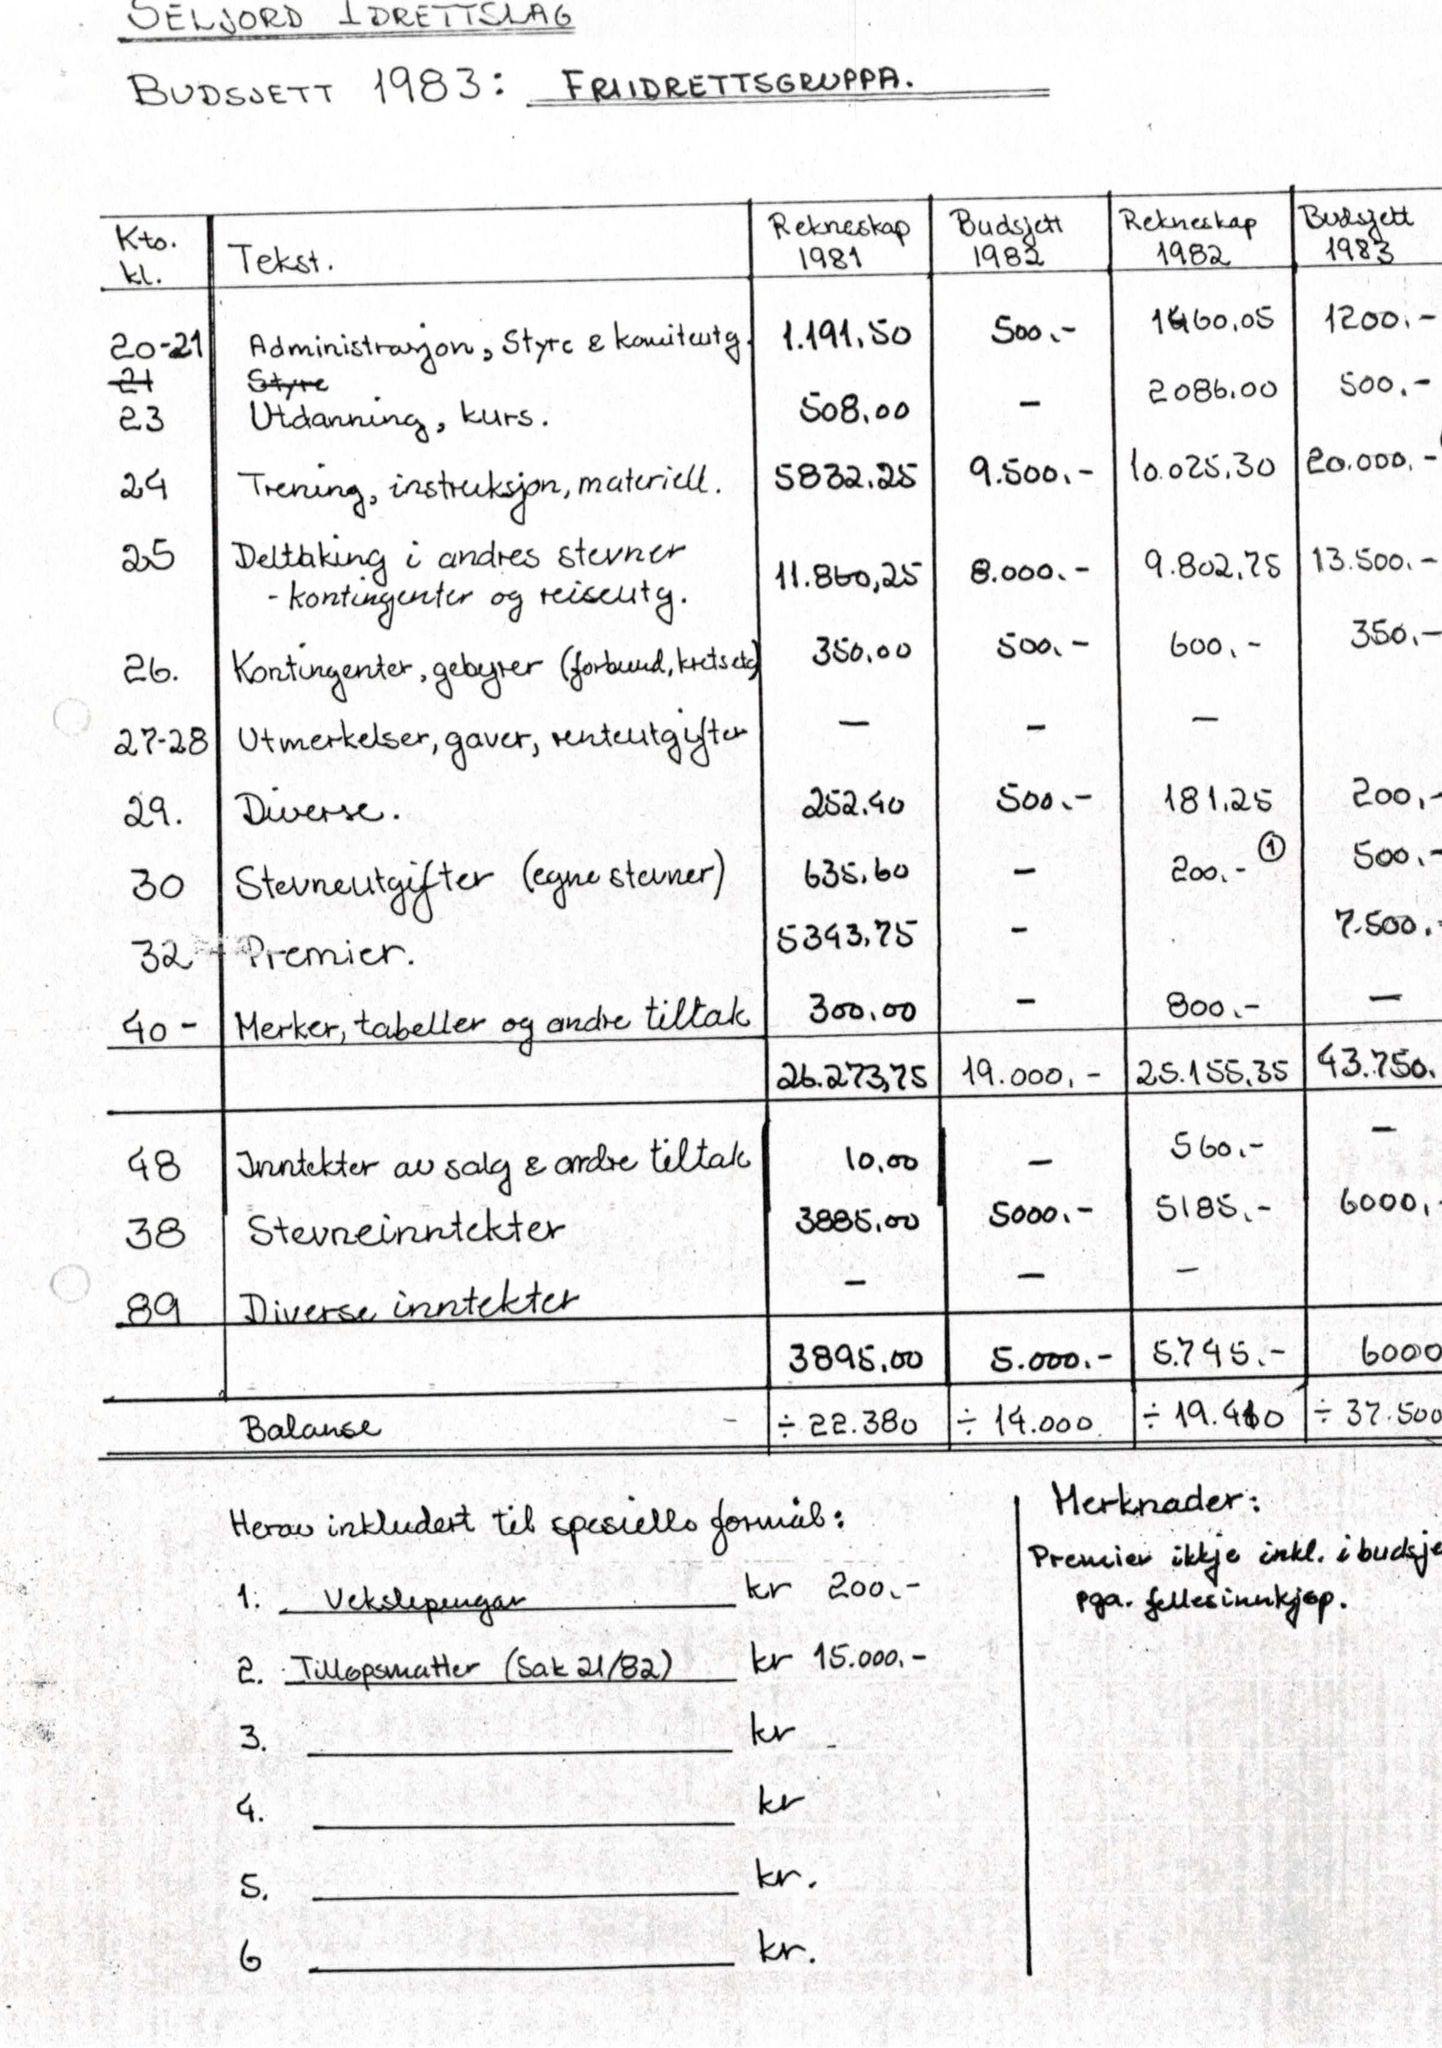 SELJORD IDRETTSLAG
BUDSJETT 1983: FRIIDRETTSGRUPPA.
Kto. kl. Tekst. Rekneskap 1981 Budsjett 1982 Rekneskap 1982 Budsjett 1983
20-21 Administrasjon, Styre & komiteutg. 1.191,50 500.- 1460,05 1200.-
21 Styre
23 Utdanning, kurs. 508,00 - 2086.00 500.-
24 Trening, instruksjon, materiell. 5832,25 9.500.- 10.025,30 20.000.-
25 Deltaking i andres stevner
- kontingenter og reiseutg. 11.860,25 8.000.- 9.802,75 13.500.-
26. Kontingenter, gebyrer (forbund, krets etc) 350,00 500.- 600,- 350.-
27-28 Utmerkelser, gaver, renteutgifter - - -
29. Diverse. 252,40 500.- 181,25 200,-
30 Stevneutgifter (egne stevner) 635,60 - 200.- 1 500.-
32 Premier. 5343,75 - 7.500.-
40- Merker, tabeller og andre tiltak 300,00 - 800.- -
26.273,75 19.000,- 25.155,35 43.750.
48 Inntekter av salg & andre tiltak 10,00 - 560.- -
38 Stevneinntekter 3885,00 5000.- 5185.- 6000,-
89 Diverse inntekter - - -
3895,00 5.000.- 5.745.- 6000
Balanse - ÷ 22.380 ÷ 14.000 ÷ 19.410 ÷ 37.500
Herav inkludert til spesielle formål:
1. Vekslepengar kr 200.-
2. Tillopsmatter (Sak 21/82) kr 15.000.-
3. kr
4. kr
5. kr.
6 kr.
Merknader:
Premier ikkje inkl. i budsje
pga. fellesinnkjøp.